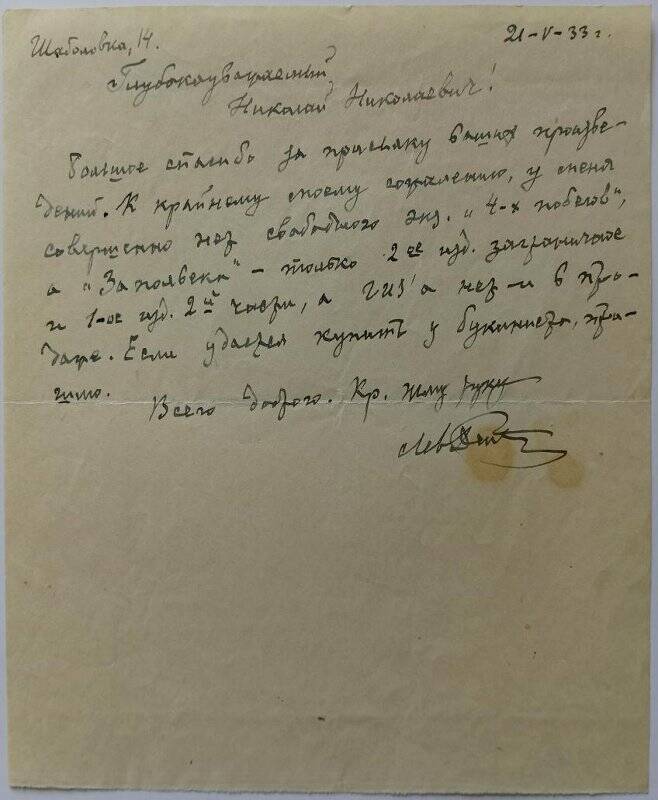 Шаболовка, 14.
21-V-33 г.
Глубокоуважаемый
Николай Николаевич!
Большое спасибо за присылку ваших произве-
дений. К крайнему моему сожалению, у меня
совершенно нет свободного экз. "4-х побегов",
а "За полвека" - только 2ое изд. заграничное
и 1-ое изд. 2й части, а ГИЗ'а нет и в про-
даже. Если удастся купить у букиниста, при-
шлю.
Всего доброго. Кр. жму руку
Лев Дейч